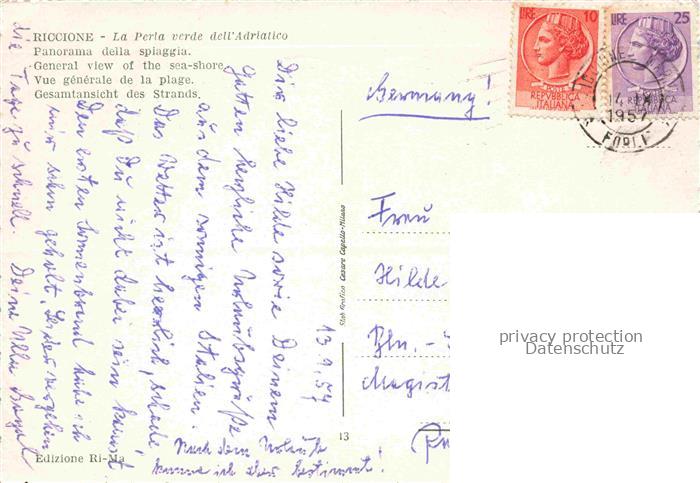 RICCIONE - La Perla verde dell'Adriatico
Panorama della spiaggia.
General view of the sea-shore.
Vue générale de la plage.
Gesamtansicht des Strands.
13.9.57
Dir liebe Hilde sowie Deinem
Gatten herzliche Urlaubsgrüße
aus dem sonnigen Italien.
Das Wetter ist herrlich, schade
daß Du nicht dabei sein kannst
Den ersten Sonnenbrand habe ich
mir schon geholt. Leider vergehen
die Tage zu schnell. Deine Ulla
Nach dem Urlaub
komme ich aber bestimmt!
Edizione Ri-Ma
13
Stab Grafico Cesare Capello-Milano
LIRE 10
REPVBBLICA
ITALIANA
LIRE 25
REPVBBLICA
ITALIANA
1957
FORLI
Germany!
Frau
Hilde
Bln. -
Magist
privacy protection
Datenschutz